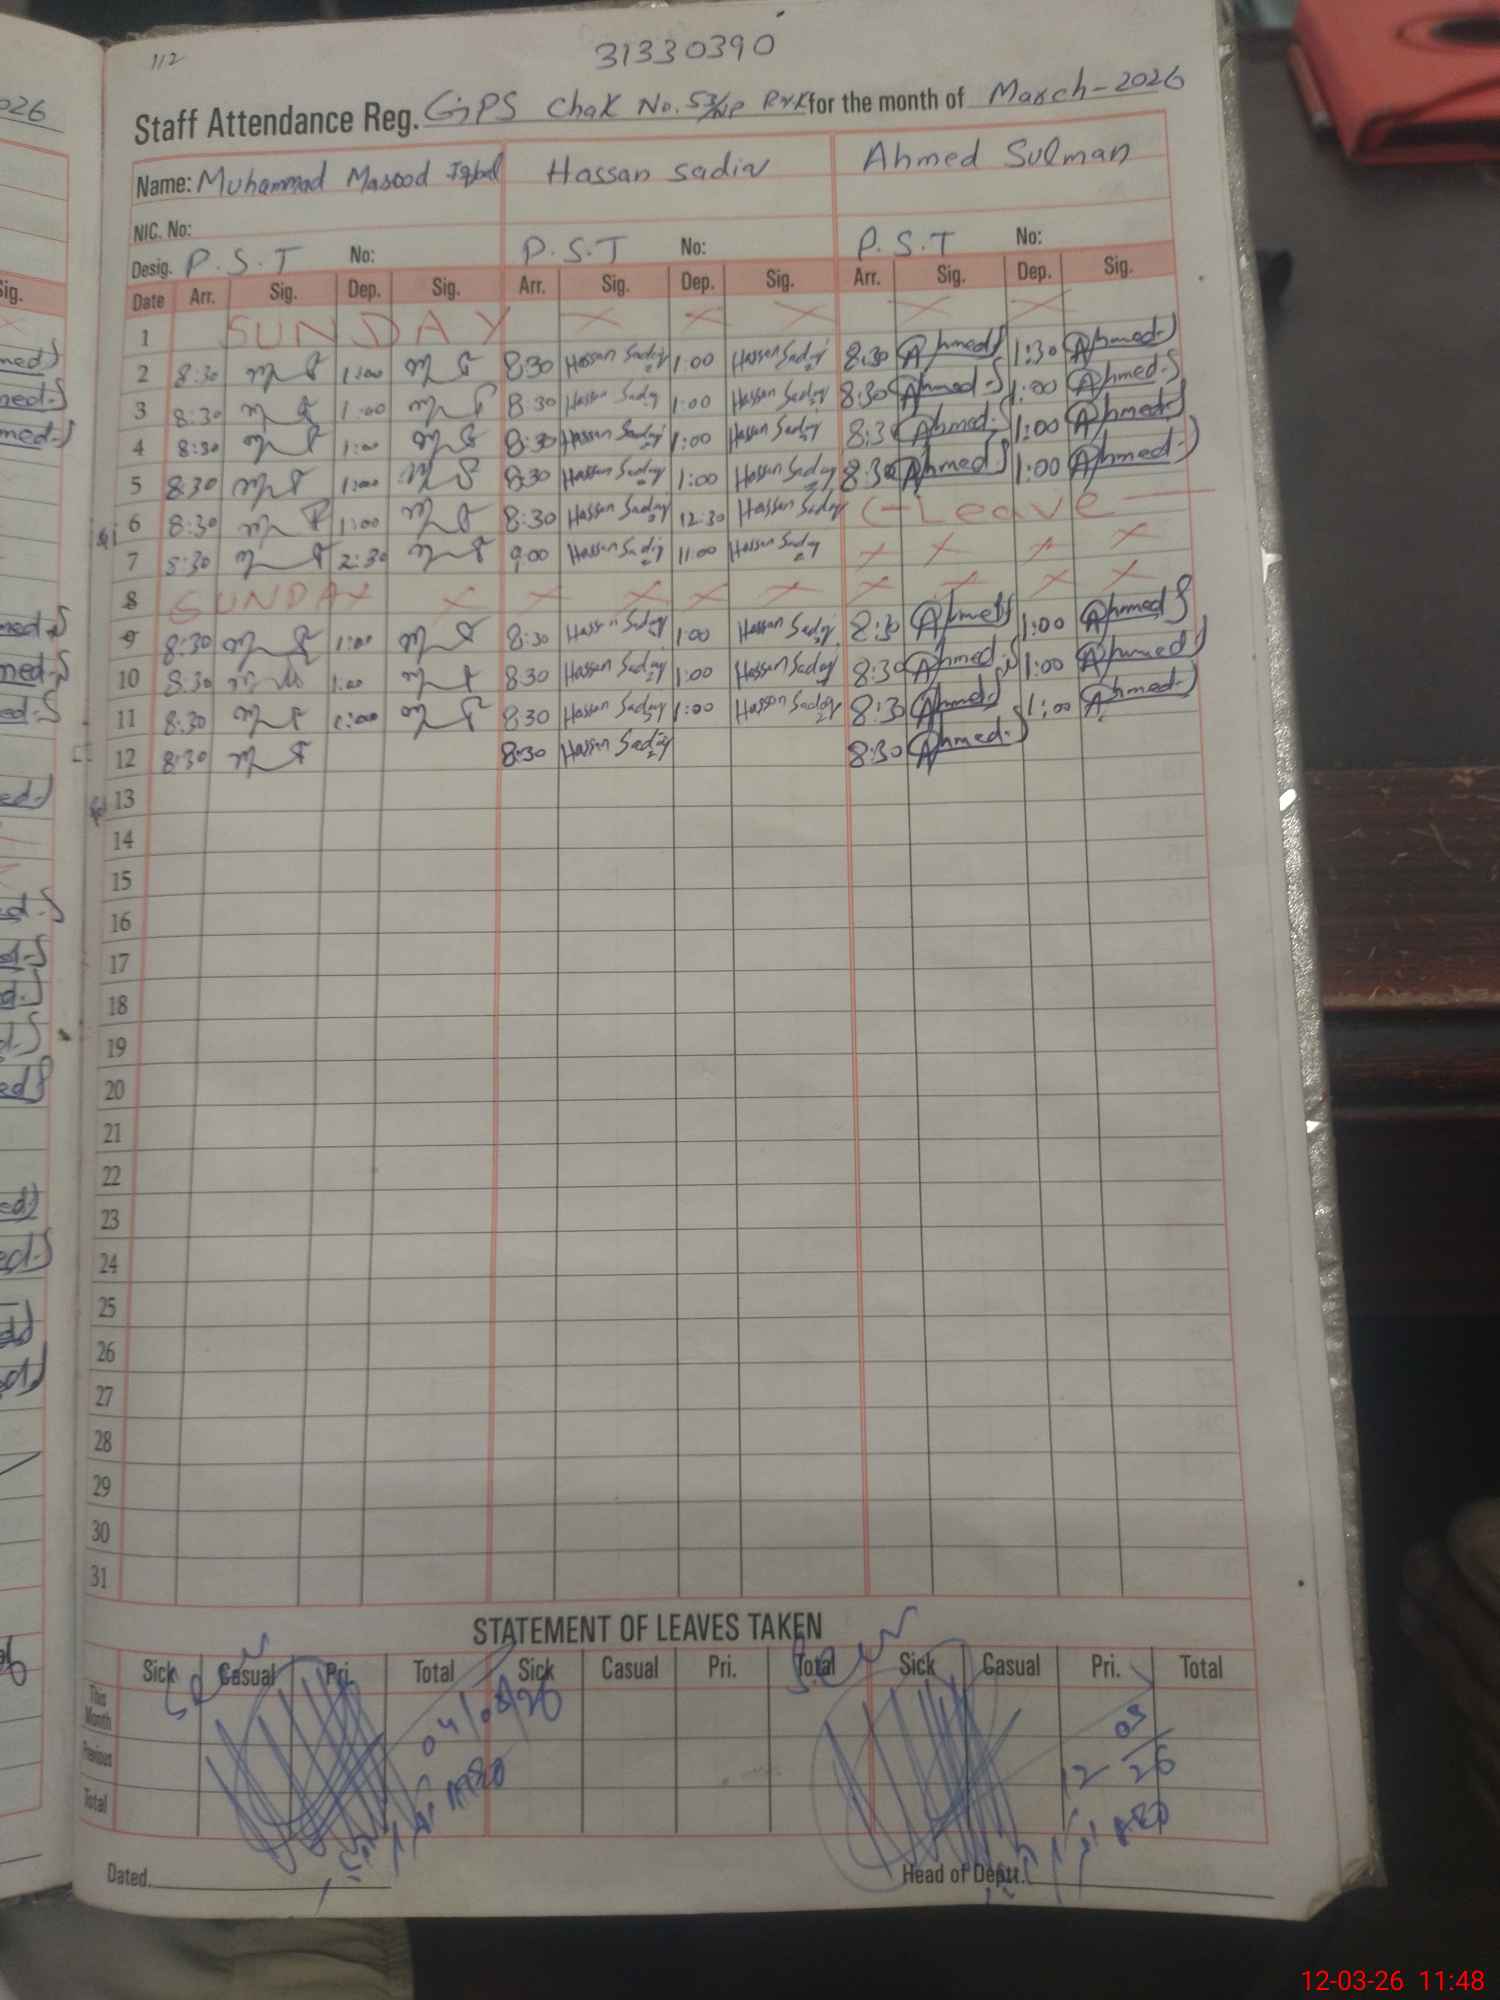 112
31330390
Staff Attendance Reg. GPS Chak No. 53/NP RYK for the month of March-2026
Name: Muhammad Masood Iqbal Hassan Sadiq Ahmed Sulman
NIC. No:
Desig. P.S.T No: P.S.T No: P.S.T No:
Date Arr. Sig. Dep. Sig. Arr. Sig. Dep. Sig. Arr. Sig. Dep. Sig.
1 SUNDAY
2 8:30 1:00 8:30 Hassan Sadiq 1:00 Hassan Sadiq 8:30 Ahmed S 1:30 Ahmed.S
3 8:30 1:00 8:30 Hassan Sadiq 1:00 Hassan Sadiq 8:30 Ahmed.S 1:00 Ahmed.S
4 8:30 1:00 8:30 Hassan Sadiq 1:00 Hassan Sadiq 8:3 Ahmed.S 1:00 Ahmed.S
5 8:30 1:00 8:30 Hassan Sadiq 1:00 Hassan Sadiq 8:30 Ahmed S 1:00 Ahmed.S
6 8:30 1:00 8:30 Hassan Sadiq 12:30 Hassan Sadiq C-Leave
7 8:30 2:30 9:00 Hassan Sadiq 11:00 Hassan Sadiq
8 SUNDAY
9 8:30 1:00 8:30 Hassan Sadiq 1:00 Hassan Sadiq 8:30 Ahmed S 1:00 Ahmed S
10 8:30 1:00 8:30 Hassan Sadiq 1:00 Hassan Sadiq 8:30 Ahmed.S 1:00 Ahmed S
11 8:30 1:00 8:30 Hassan Sadiq 1:00 Hassan Sadiq 8:3 Ahmed S 1:00 Ahmed.S
12 8:30 8:30 Hassan Sadiq 8:30 Ahmed.S
13
14
15
16
17
18
19
20
21
22
23
24
25
26
27
28
29
30
31
STATEMENT OF LEAVES TAKEN
Sick Casual Pri. Total Sick Casual Pri. Total Sick Casual Pri. Total
This Month
Previous
Total
04/03/26
12 03 26
Dated. Head of Deptt.
12-03-26 11:48